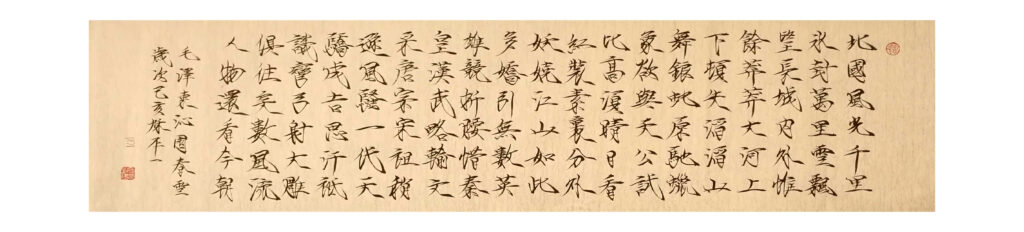 北國風光千里
冰封萬里雪飄
望長城內外惟
餘莽莽大河上
下頓失滔滔山
舞銀蛇原馳蠟
象欲與天公試
比高須晴日看
紅裝素裹分外
妖嬈江山如此
多嬌引無數英
雄競折腰惜秦
皇漢武略輸文
采唐宗宋祖稍
遜風騷一代天
驕成吉思汗祇
識彎弓射大雕
俱往矣數風流
人物還看今朝
毛澤東沁園春雪
歲次己亥